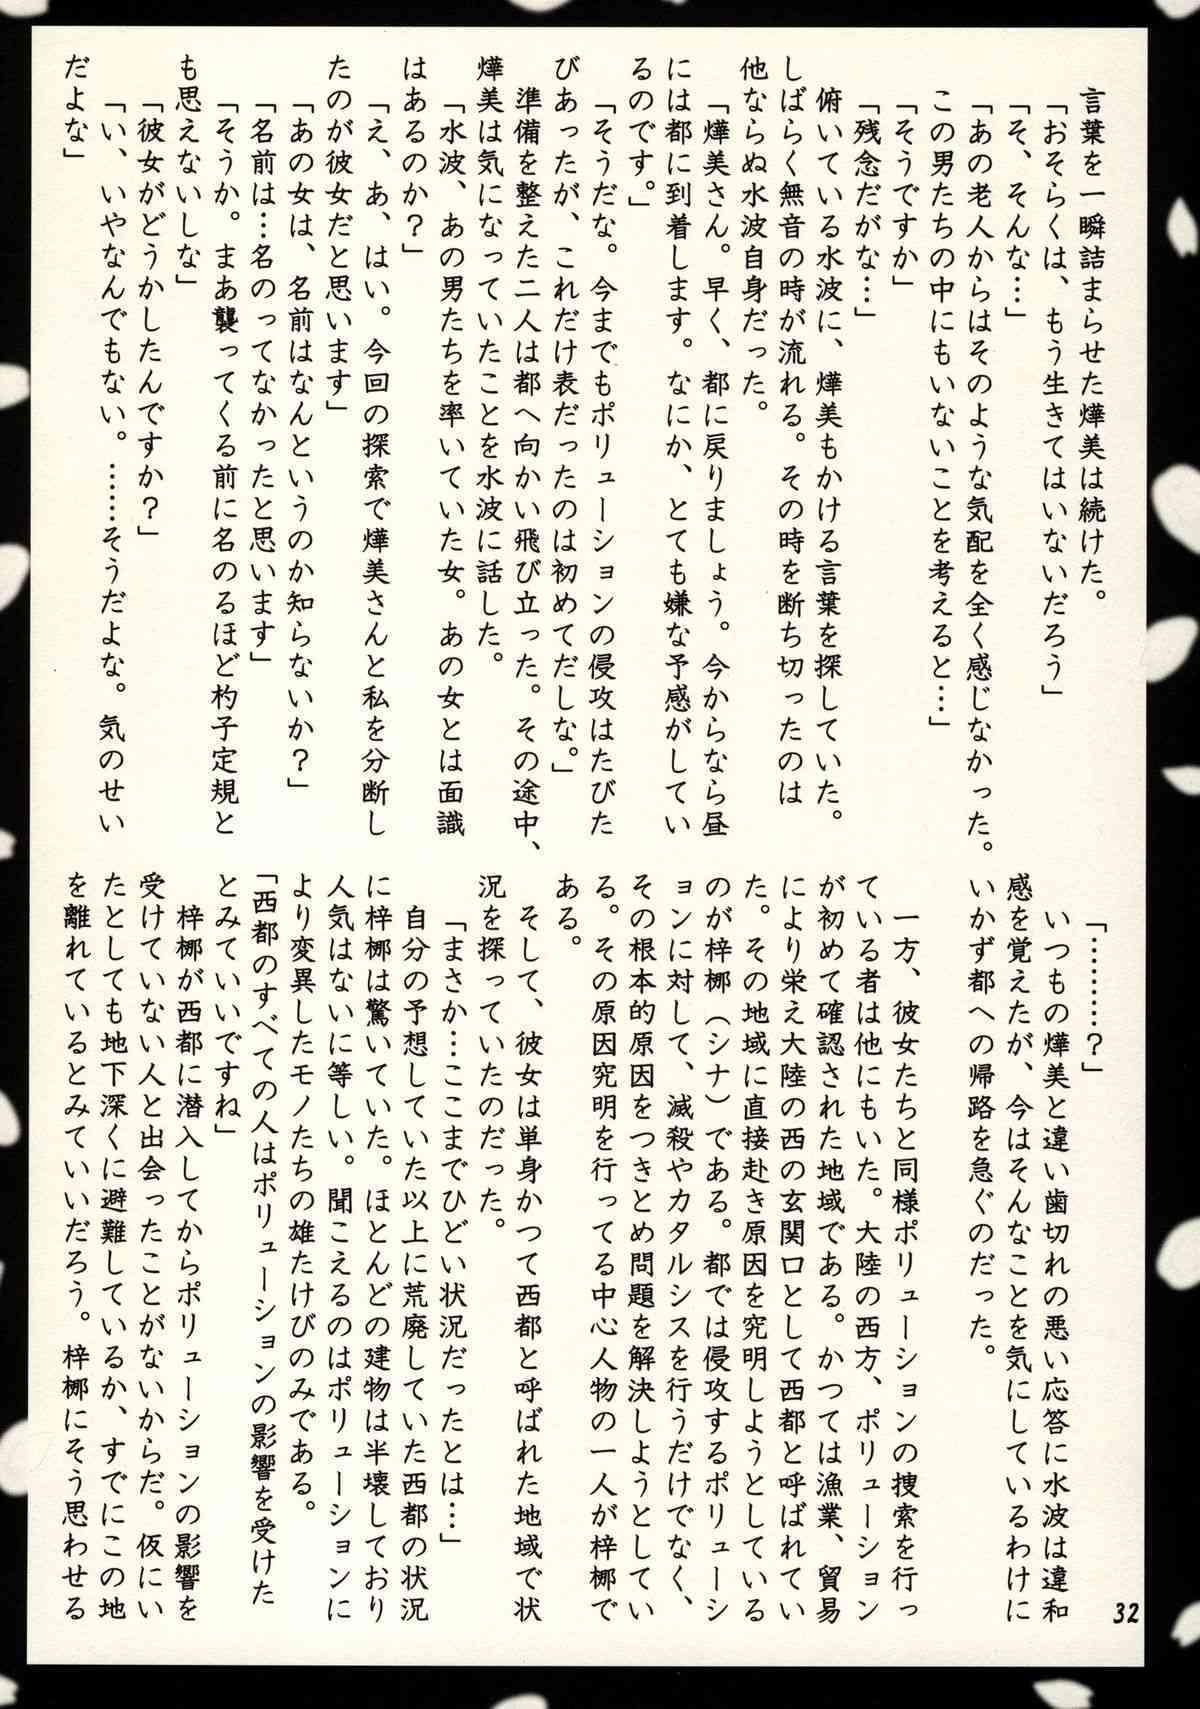 言葉を一瞬詰まらせた燁美は続けた。
「おそらくは、もう生きてはいないだろう」
「そ、そんな…」
「あの老人からはそのような気配を全く感じなかった。
この男たちの中にもいないことを考えると…」
「そうですか」
「残念だがな…」
俯いている水波に、燁美もかける言葉を探していた。
しばらく無音の時が流れる。その時を断ち切ったのは
他ならぬ水波自身だった。
「燁美さん。早く、都に戻りましょう。今からなら昼
には都に到着します。なにか、とても嫌な予感がしてい
るのです。」
「そうだな。今までもポリューションの侵攻はたびた
びあったが、これだけ表だったのは初めてだしな。」
準備を整えた二人は都へ向かい飛び立った。その途中、
燁美は気になっていたことを水波に話した。
「水波、あの男たちを率いていた女。あの女とは面識
はあるのか？」
「え、あ、はい。今回の探索で燁美さんと私を分断し
たのが彼女だと思います」
「あの女は、名前はなんというのか知らないか？」
「名前は…名のってなかったと思います」
「そうか。まあ襲ってくる前に名のるほど杓子定規と
も思えないしな」
「彼女がどうかしたんですか？」
「い、いやなんでもない。……そうだよな。気のせい
だよな」
「………？」
いつもの燁美と違い歯切れの悪い応答に水波は違和
感を覚えたが、今はそんなことを気にしているわけに
いかず都への帰路を急ぐのだった。
一方、彼女たちと同様ポリューションの捜索を行っ
ている者は他にもいた。大陸の西方、ポリューション
が初めて確認された地域である。かつては漁業、貿易
により栄え大陸の西の玄関口として西都と呼ばれてい
た。その地域に直接赴き原因を究明しようとしている
のが梓梛（シナ）である。都では侵攻するポリューシ
ョンに対して、滅殺やカタルシスを行うだけでなく、
その根本的原因をつきとめ問題を解決しようとしてい
る。その原因究明を行ってる中心人物の一人が梓梛で
ある。
そして、彼女は単身かつて西都と呼ばれた地域で状
況を探っていたのだった。
「まさか…ここまでひどい状況だったとは…」
自分の予想していた以上に荒廃していた西都の状況
に梓梛は驚いていた。ほとんどの建物は半壊しており
人気はないに等しい。聞こえるのはポリューションに
より変異したモノたちの雄たけびのみである。
「西都のすべての人はポリューションの影響を受けた
とみていいですね」
梓梛が西都に潜入してからポリューションの影響を
受けていない人と出会ったことがないからだ。仮にい
たとしても地下深くに避難しているか、すでにこの地
を離れているとみていいだろう。梓梛にそう思わせる
32